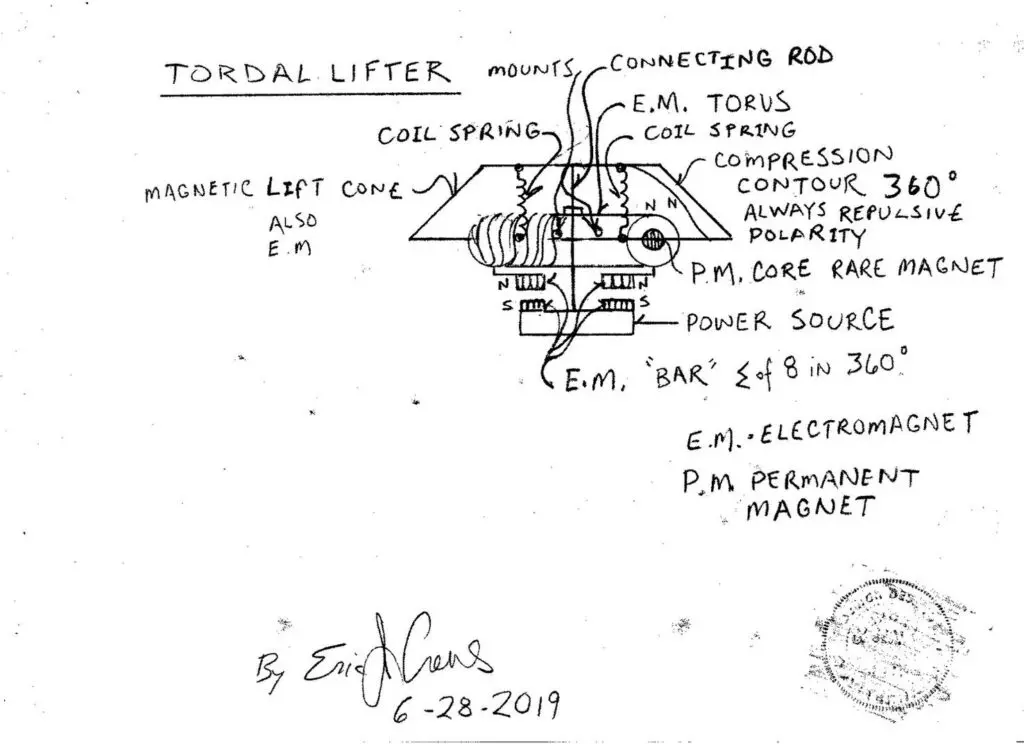 TORDAL LIFTER
MOUNTS
CONNECTING ROD
E.M. TORUS
COIL SPRING
COIL SPRING
MAGNETIC LIFT CONE
ALSO
E.M
COMPRESSION
CONTOUR 360°
ALWAYS REPULSIVE
POLARITY
N N
P.M. CORE RARE MAGNET
N
N
S
S
POWER SOURCE
E.M. "BAR" ⅀ of 8 IN 360°
E.M. - ELECTROMAGNET
P.M. PERMANENT
MAGNET
By Eric J Crews
6-28-2019